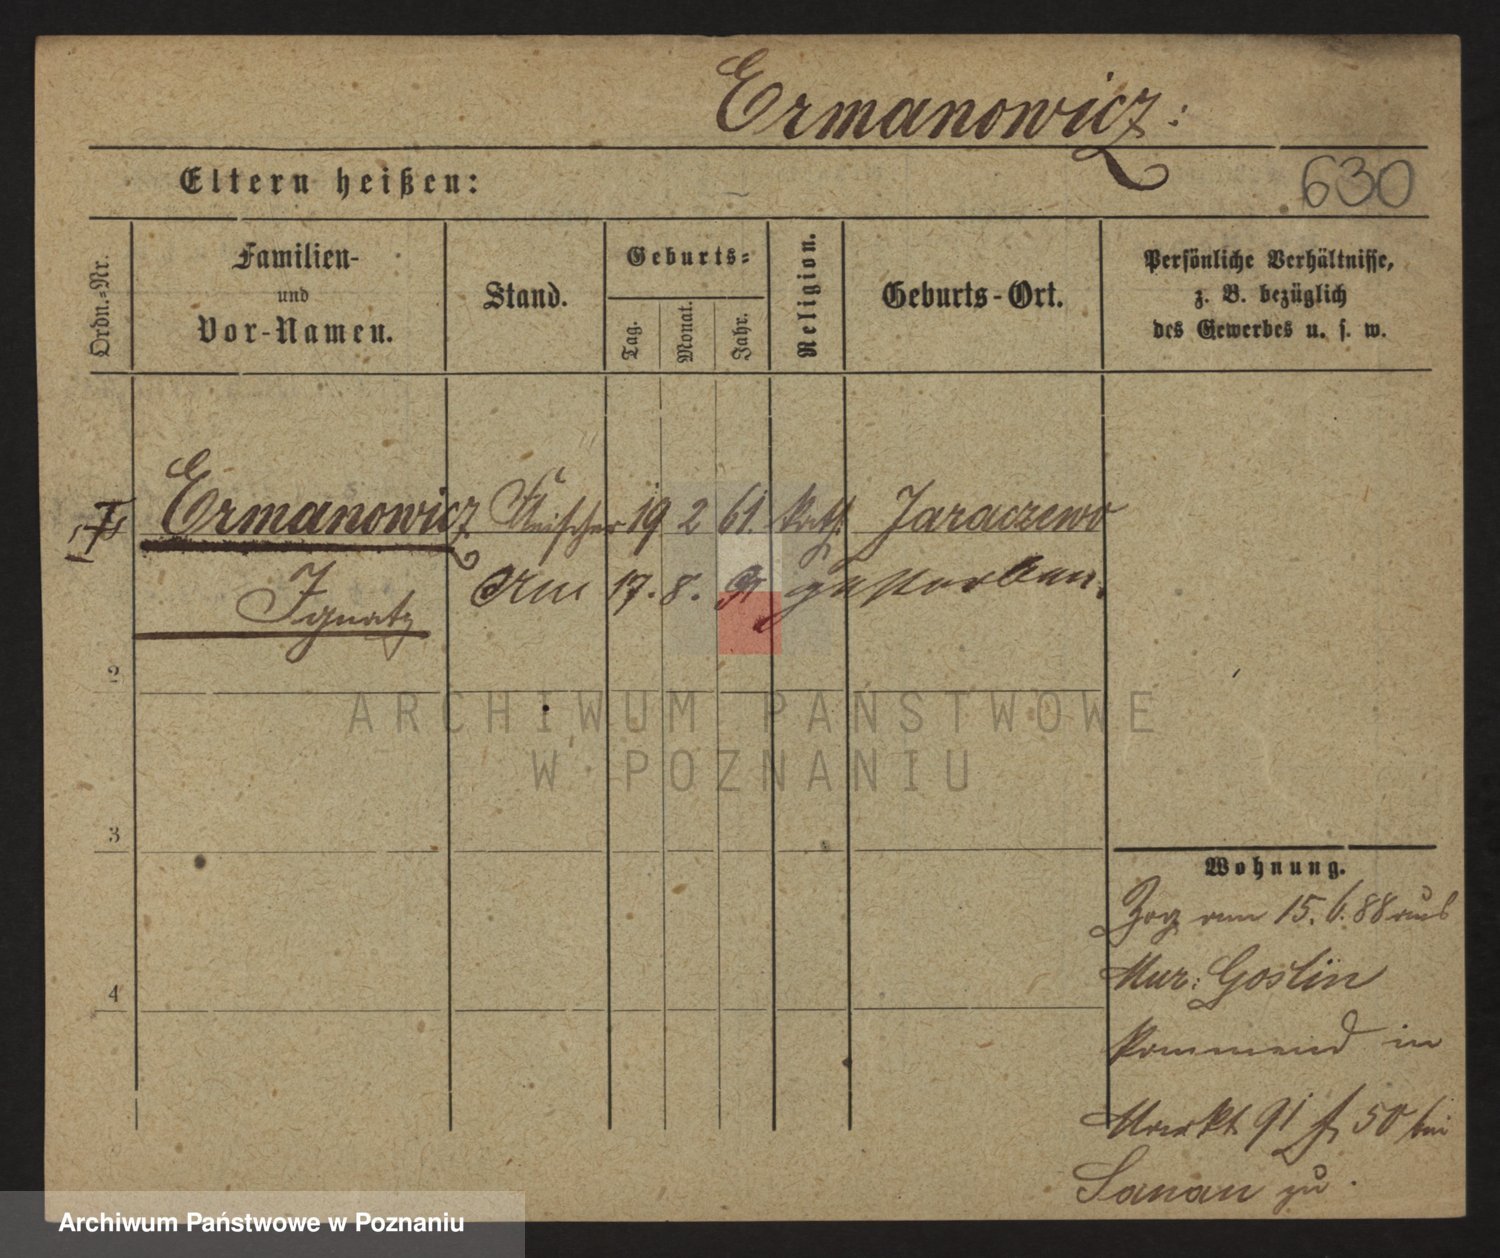 Ermanowicz:
Eltern heißen:
630
Ordn.-Nr.
Familien-
und
Vor-Namen.
Stand.
Geburts-
Tag.
Monat.
Jahr.
Religion.
Geburts-Ort.
Persönliche Verhältnisse,
z. B. bezüglich
des Gewerbes u. s. w.
Ermanowicz Fleischer 19 2 61. kath. Jaraczewo
Ignatz
Am 17. 8. 91 gestorben.
2
3
4
ARCHIWUM PAŃSTWOWE
W POZNANIU
Wohnung.
Zog am 15. 6. 88 aus
Mur: Goslin
kommend in
Markt 91 50 bei
zu.
Archiwum Państwowe w Poznaniu